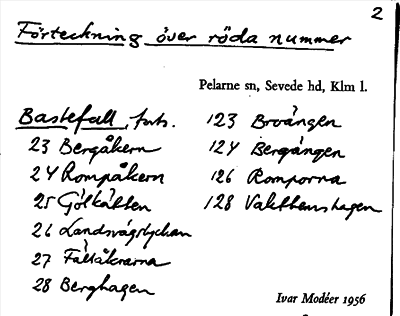 2
Förteckning över röda nummer
Pelarne sn, Sevede hd, Klm l.
Bastefall, forts.
23 Bergåkern
24 Rompåkern
25 Gölkälten
26 Landsvägslyckan
27 Fallåkrarna
28 Berghagen
123 Broängen
124 Bergängen
126 Romporna
128 Vakthemshagen
Ivar Modéer 1956